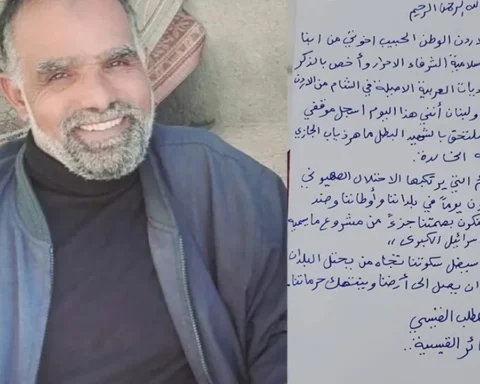 الله الرحمن الرحيم
اردن الوطن الحبيب اخوتي من ابنا
سلامية الشرفاء الاحرار وأخص بالذكر
ديات العربية الاصيلة في الشام من الاردن
ولبنان أنني هذا اليوم أسجل موقفي
لملتحق بالشهيد البطل ماهر ذياب الجازي
ه الخالدة.
م التي يرتكبها الاحتلال الصهيوني
ون يوماً في بلداننا وأوطاننا وضد
تكون بصمتنا جزءً من مشروع ما يسمى
سرائيل الكبرى ،،
سيضل سكوتنا تجاه من يحتل البلدان
ان يصل الى أرضنا وينتهك حرماتنا
طلب القيسي
ائر القيسية..